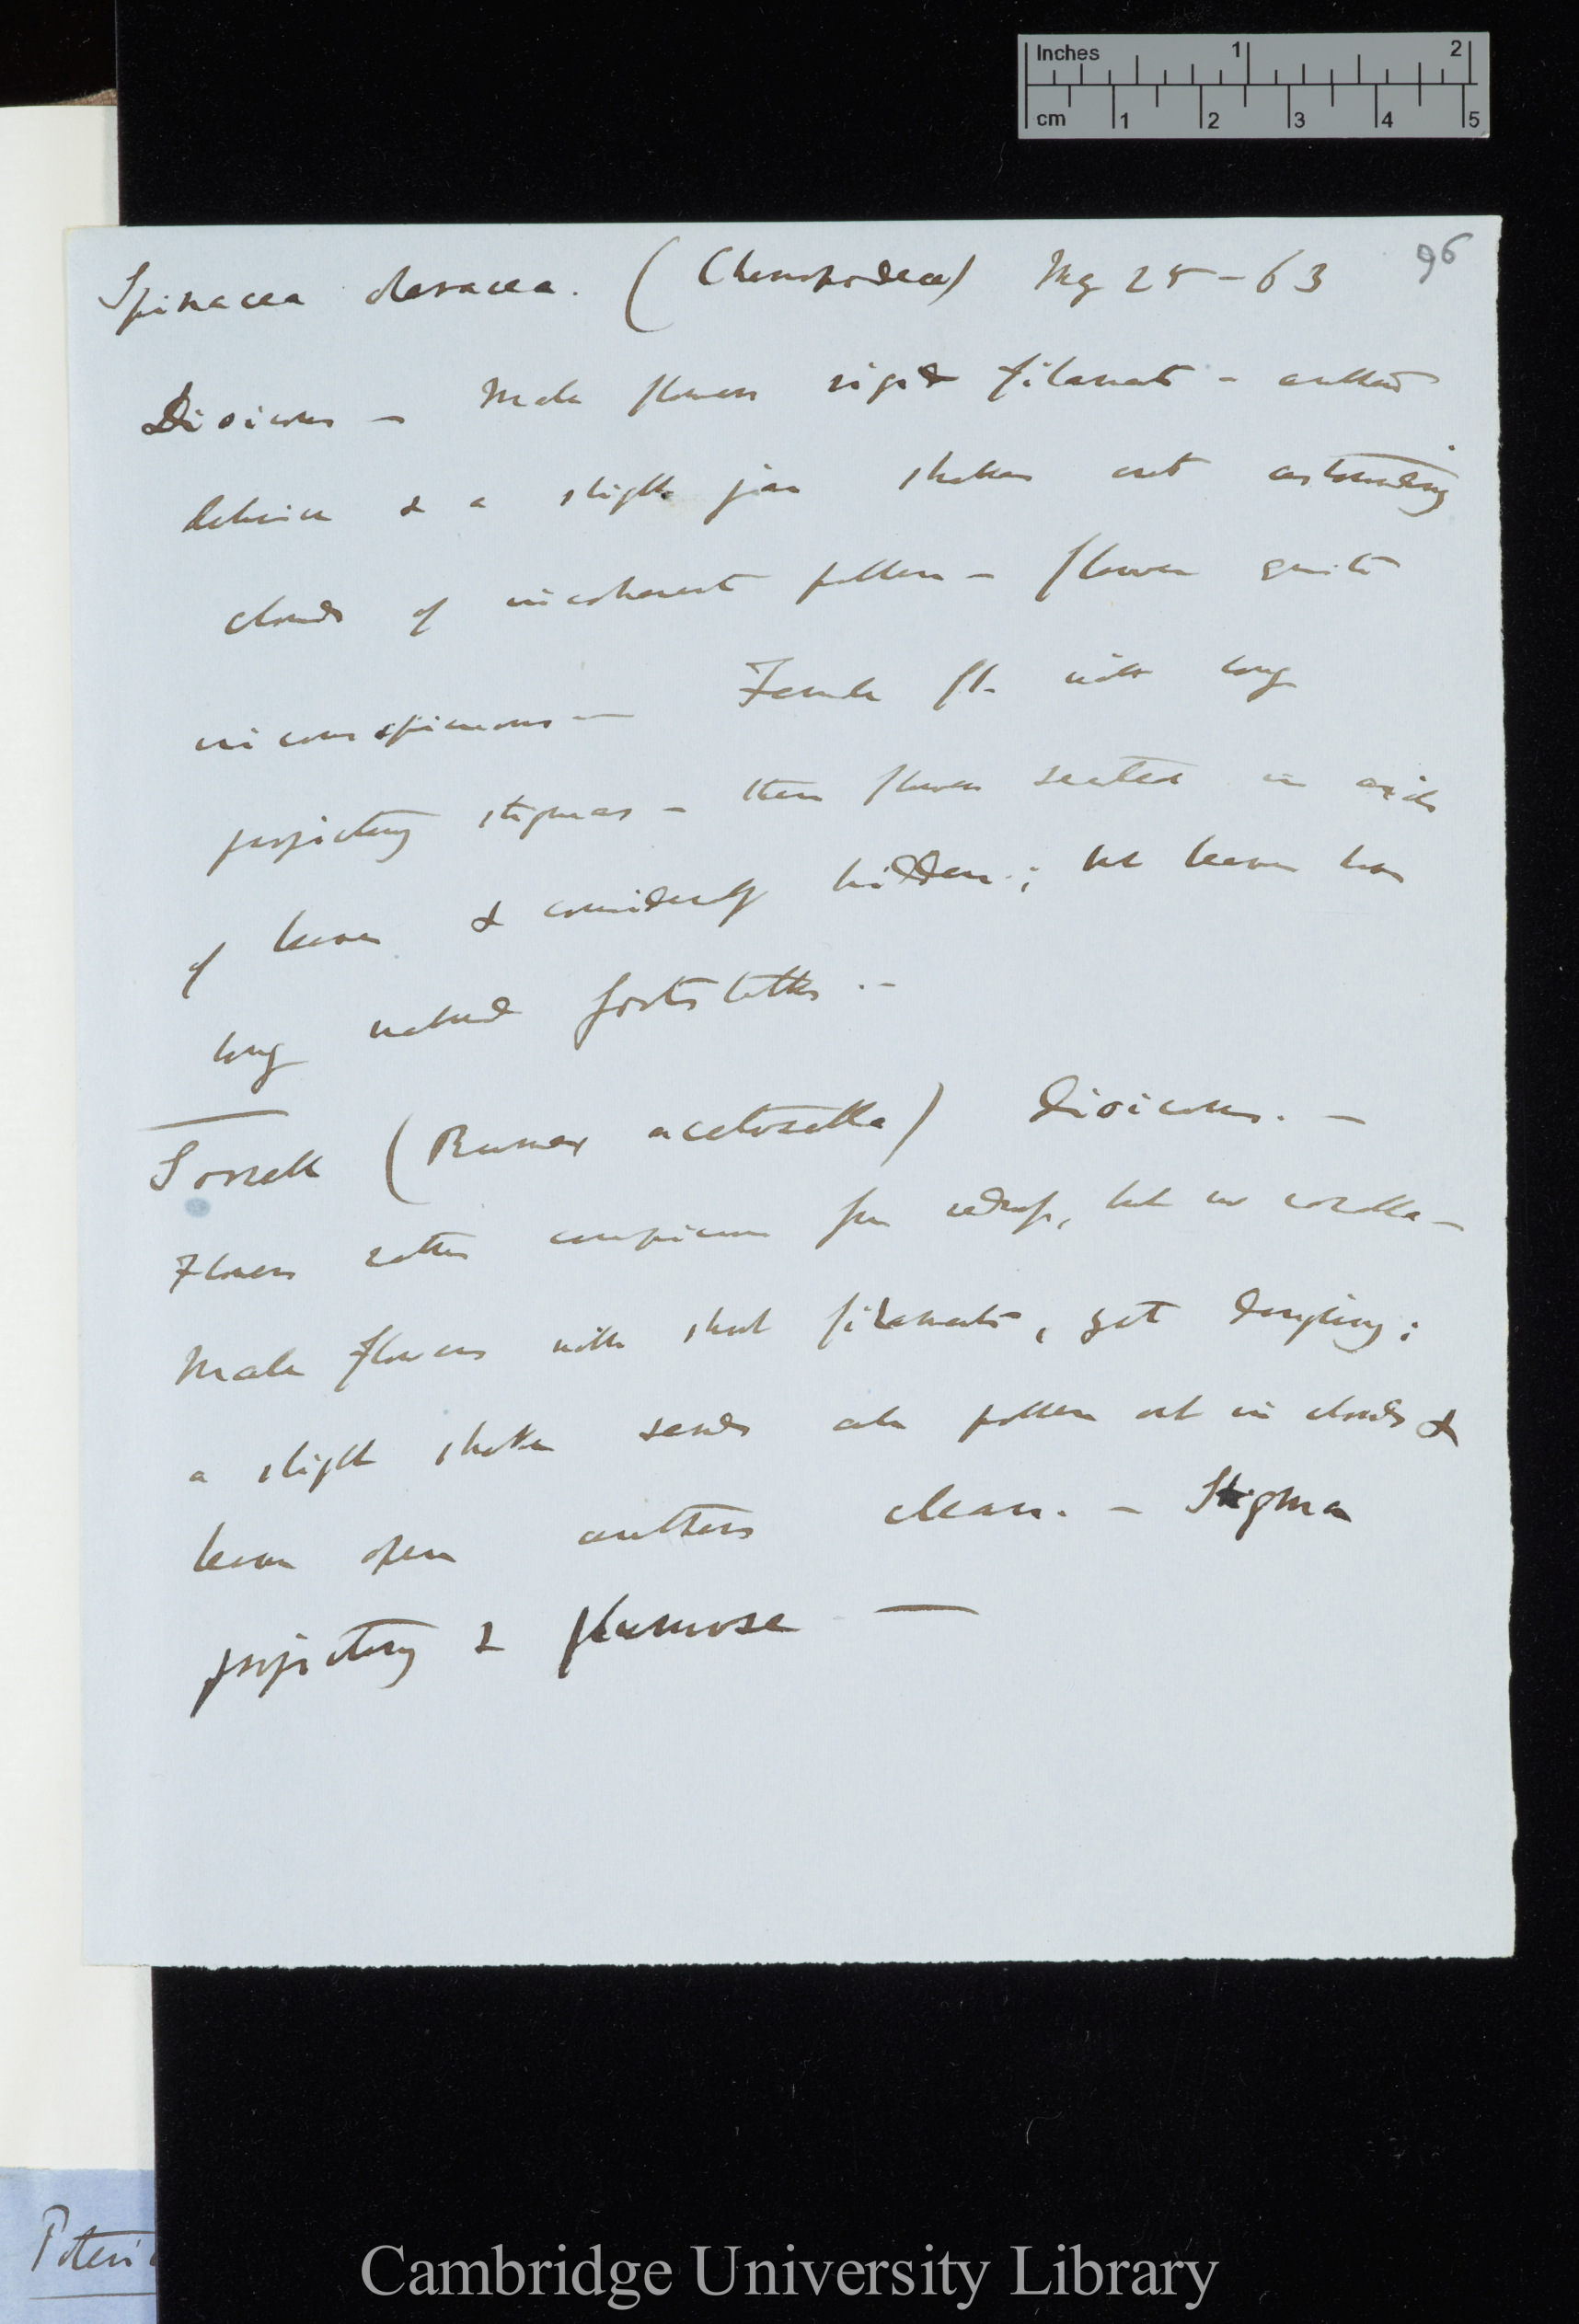 Inches 1 2
cm 1 2 3 4 5
96
Spinacea oleracea. (Chenopodeæ) May 25 - 63
Dioicous - Male flowers rigid filaments - anthers
dehisce & a slight jar shakes out astounding
clouds of incoherent pollen - flower quite
inconspicuous — Female fl. with long
projecting stigmas - these flowers seated in axils
of leaves & considerably hidden; but leaves have
long naked footstalks .-
Sorrell (Rumex acetosella) Dioicous. -
Flowers rather conspicuous from redness, but no corolla -
Male flowers with short filaments, yet dangling;
a slight shake sends out pollen out in clouds &
leaves open anthers clean. - Stigma
projecting & plumose —
Poteri
Cambridge University Library